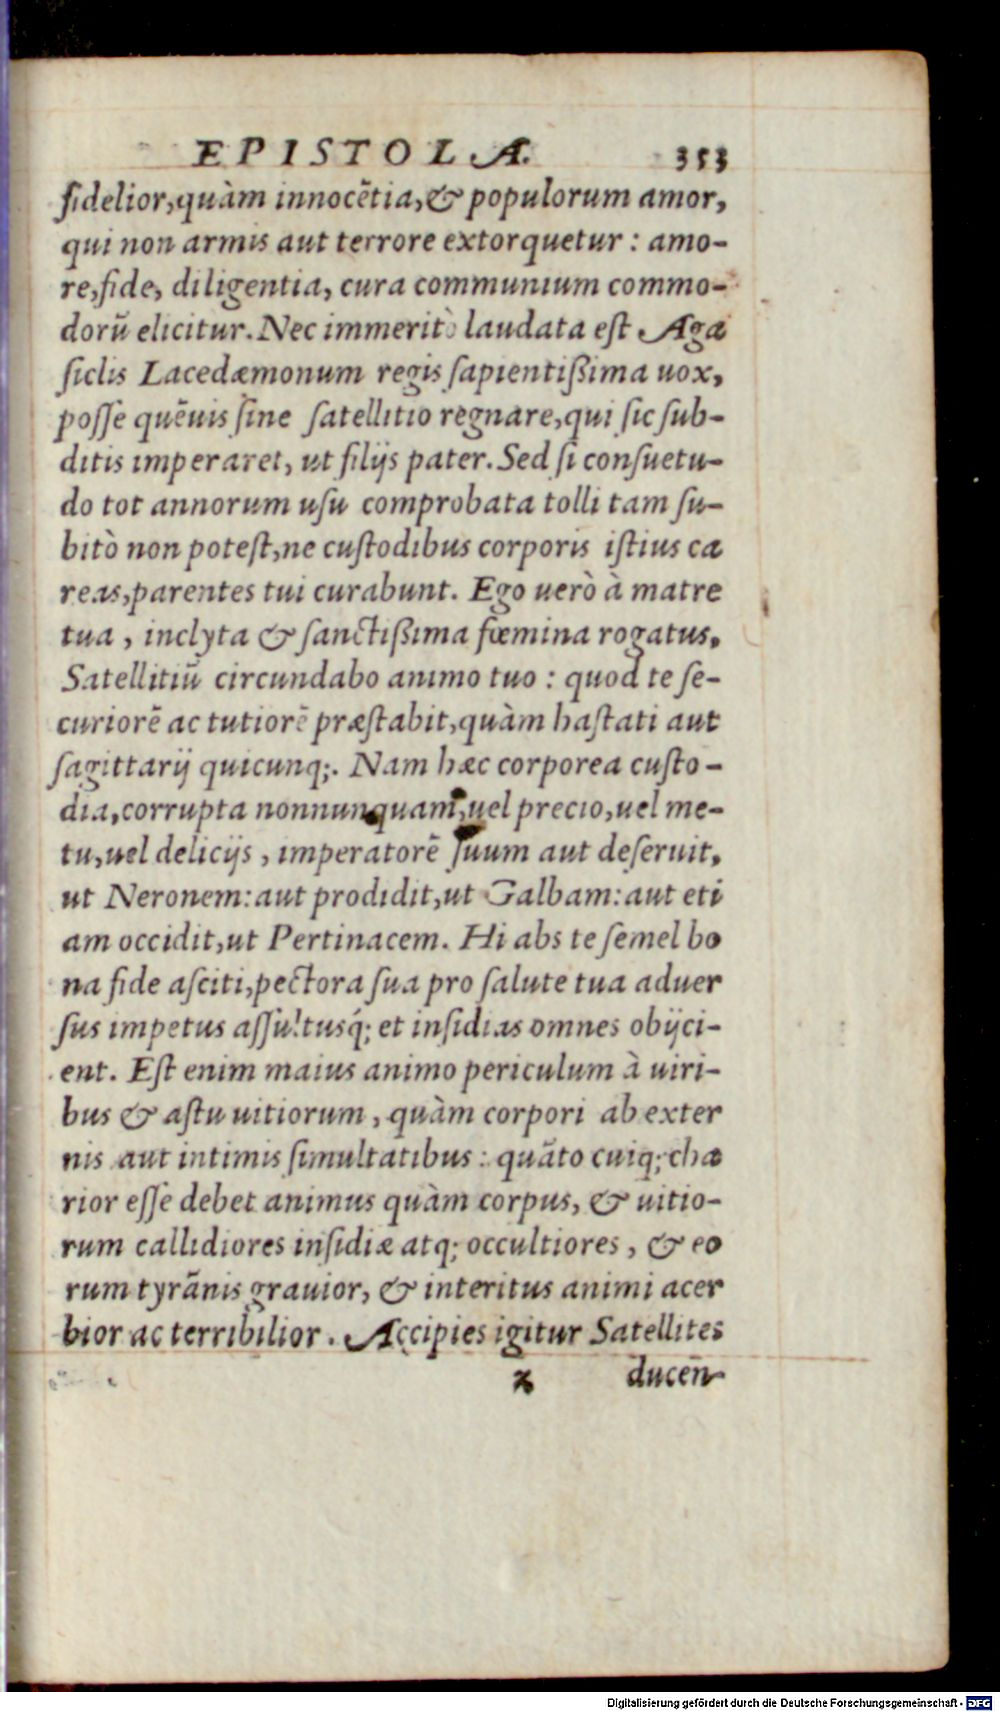 EPISTOLA. 353
fidelior,quàm innocẽtia,& populorum amor,
qui non armis aut terrore extorquetur : amo-
re,fide, diligentia, cura communium commo-
dorũ elicitur. Nec immeritò laudata eſt Aga
ſiclis Lacedæmonum regis ſapientißima uox,
poſſe quẽuis ſine ſatellitio regnare,qui ſic ſub-
ditis imperaret, ut filijs pater. Sed ſi conſuetu-
do tot annorum uſu comprobata tolli tam ſu-
bitò non poteſt,ne cuſtodibus corporis iſtius ca
reas,parentes tui curabunt. Ego uerò à matre
tua , inclyta & ſanctißima fœmina rogatus,
Satellitiũ circundabo animo tuo : quod te ſe-
curiorẽ ac tutiorẽ præſtabit,quàm haſtati aut
ſagittarij quicunq;. Nam hæc corporea cuſto-
dia,corrupta nonnunquam,uel precio,uel me-
tu,uel delicijs , imperatorẽ ſuum aut deſeruit,
ut Neronem: aut prodidit,ut Galbam: aut eti
am occidit,ut Pertinacem. Hi abs te ſemel bo
na fide aſciti,pectora ſua pro ſalute tua aduer
ſus impetus aſſultusq́; et inſidias omnes obijci-
ent. Eſt enim maius animo periculum à uiri-
bus & aſtu uitiorum , quàm corpori ab exter
nis aut intimis ſimultatibus : quãto cuiq; cha
rior eſſe debet animus quàm corpus, & uitio-
rum callidiores inſidiæ atq; occultiores , & eo
rum tyrãnis grauior, & interitus animi acer
bior ac terribilior. Accipies igitur Satellites
z ducen-
Digitalisierung gefördert durch die Deutsche Forschungsgemeinschaft - DFG